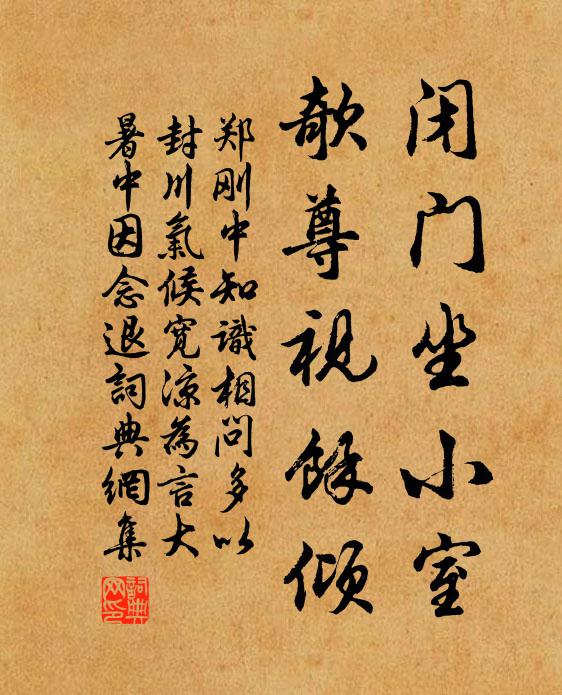 闭门坐小室
欹尊视馀倾
郑刚中知識相问多以
封川氣候宽凉為言大
暑中因念退詞典網集
詞典网印